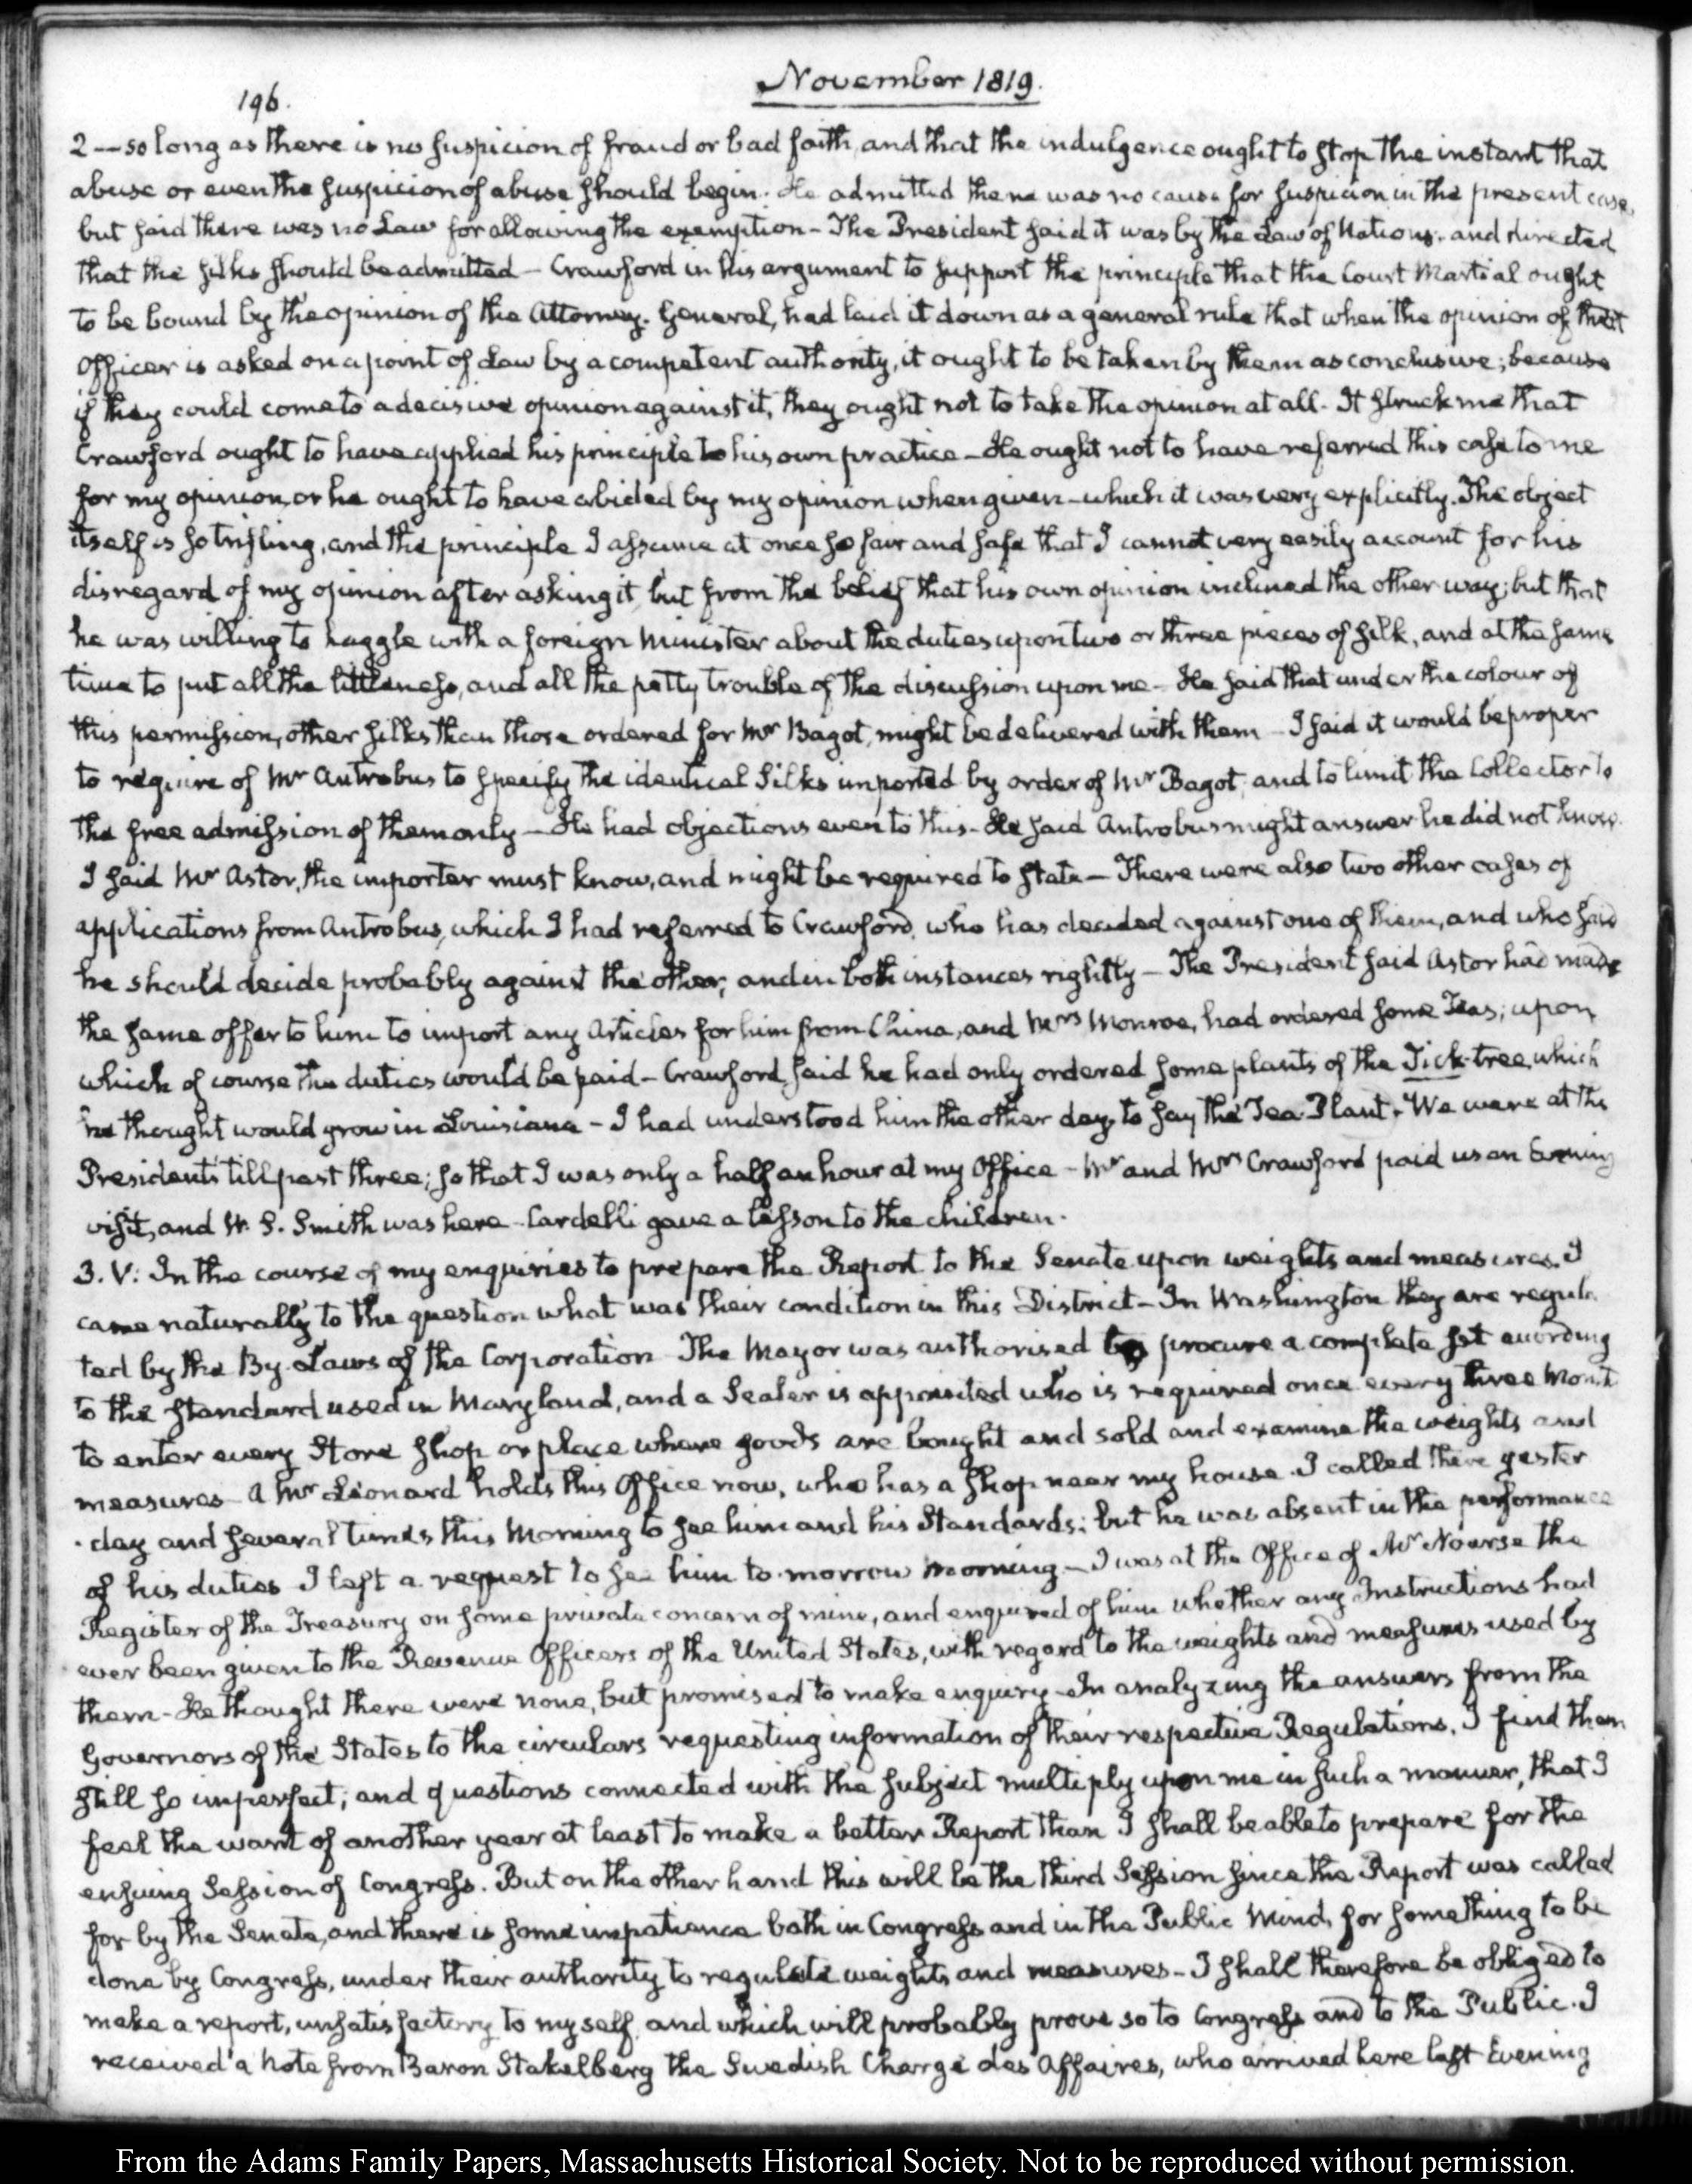 November 1819.
196.
2 — so long as there is no suspicion of fraud or bad faith, and that the indulgence ought to stop the instant that
abuse or even the suspicion of abuse should begin. He admitted there was no cause for suspicion in the present case,
but said there was no Law for allowing the exemption - The President said it was by the Law of Nations. and directed
that the silks should be admitted - Crawford in his argument to support the principle that the Court Martial ought
to be bound by the opinion of the Attorney-General, had laid it down as a general rule that when the opinion of that
Officer is asked on a point of Law by a competent authority, it ought to be taken by them as conclusive; because
if they could come to a decisive opinion against it, they ought not to take the opinion at all. It struck me that
Crawford ought to have applied his principle to his own practice - He ought not to have referred this case to me
for my opinion, or he ought to have abided by my opinion when given - which it was very explicitly. The object
itself is so trifling, and the principle I assume at once so fair and safe that I cannot very easily account for his
disregard of my opinion after asking it, but from the belief that his own opinion inclined the other way; but that
he was willing to haggle with a foreign Minister about the duties upon two or three pieces of silk, and at the same
time to put all the littleness, and all the petty trouble of the discussion upon me - He said that under the colour of
this permission, other silks than those ordered for Mr Bagot, might be delivered with them - I said it would be proper
to require of Mr Antrobus to specify the identical Silks imported by order of Mr Bagot, and to limit the Collector to
the free admission of them only - He had objections even to this - He said Antrobus might answer he did not know.
I said Mr Astor, the importer must know, and might be required to state - There were also two other cases of
applications from Antrobus, which I had referred to Crawford, who has decided against one of them, and who said
he should decide probably against the other; and in both instances rightly - The President said Astor had made
the same offer to him to import any Articles for him from China, and Mrs Monroe, had ordered some Teas; upon
which of course the duties would be paid - Crawford said he had only ordered some plants of the Tick-tree, which
he thought would grow in Louisiana - I had understood him the other day, to say the Tea Plant. We were at the
President's till past three; so that I was only a half an hour at my Office - Mr and Mrs Crawford paid us an Evening
visit, and W. S. Smith was here - Cardelli gave a lesson to the children.
3. V: In the course of my enquiries to prepare the Report to the Senate upon weights and measures, I
came naturally to the question what was their condition in this District - In Washington they are regula
ted by the By-Laws of the Corporation - The Mayor was authorised to procure a complete set according
to the standard used in Maryland, and a Sealer is appointed who is required once every three Months
to enter every Store shop or place where goods are bought and sold and examine the weights and
measures - A Mr Leonard holds this Office now, who has a shop near my house. I called there yester
-day and several times this Morning to see him and his Standards; but he was absent in the performance
of his duties - I left a request to see him to-morrow morning - I was at the Office of Mr Nourse the
Register of the Treasury on some private concern of mine, and enquired of him whether any Instructions had
ever been given to the Revenue Officers of the United States, with regard to the weights and measures used by
them - He thought there were none, but promised to make enquiry - In analyzing the answers from the
Governors of the States to the circulars requesting information of their respective Regulations, I find them
still so imperfect; and questions connected with the subject multiply upon me in such a manner, that I
feel the want of another year at least to make a better Report than I shall be able to prepare for the
ensuing Session of Congress. But on the other hand this will be the third Session since the Report was called
for by the Senate, and there is some impatience both in Congress and in the Public Mind, for something to be
done by Congress, under their authority to regulate weights and measures - I shall therefore be obliged to
make a report, unsatisfactory to myself, and which will probably prove so to Congress and to the Public. I
received a Note from Baron Stakelberg the Swedish Chargé des Affaires, who arrived here last Evening
From the Adams Family Papers, Massachusetts Historical Society. Not to be reproduced without permission.